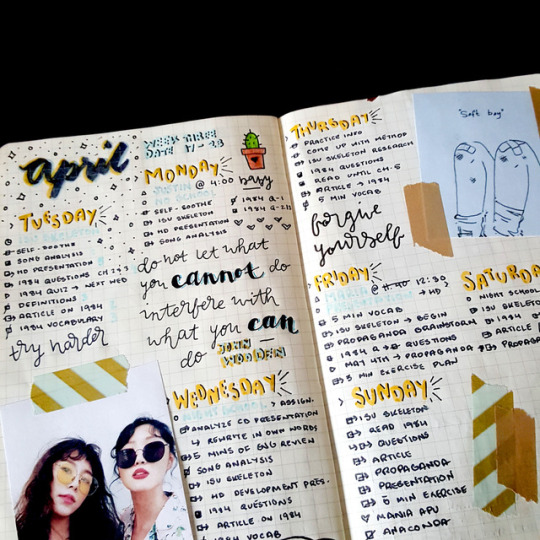 april
WEEK THREE
DATE 17 - 23
MONDAY
JUSTIN @ 4:00
NO SCHOOL
SELF-SOOTHE
ISU SKELETON
HD PRESENTATION
SONG ANALYSIS
1984 Q-1
1984 Q-2
do not let what
you cannot do
interfere with
what you can
do JOHN
WOODEN
TUESDAY
ISU SKELETON
SELF-SOOTHE
SONG ANALYSIS
HD PRESENTATION
1984 QUESTIONS CH
1984 QUIZ → NEXT WED
DEFINITIONS
ARTICLE ON 1984
1984 VOCABULARY
try harder
WEDNESDAY
NIGHT SCHOOL → ASSIGN.
ANALYZE CD PRESENTATION
↳ REWRITE IN OWN WORDS
5 MINS OF ENG REVIEW
SONG ANALYSIS
ISU SKELETON
HD DEVELOPMENT PRES.
1984 QUESTIONS
ARTICLE ON 1984
1984 VOCAB
THURSDAY
PRACTICE INFO
COME UP WITH METHOD
ISU SKELETON RESEARCH
1984 QUESTIONS
READ UNTIL CH-5
ARTICLE → 1984
5 MIN VOCAB
forgive
yourself
"Soft boy"
FRIDAY
@ 11:40 12:30
PRESENTATION → HD
5 MIN VOCAB
ISU SKELETON → BEGIN
PROPAGANDA BRAINSTORM
1984 QUESTIONS
MAY 4TH → PROPAGANDA
5 MIN EXERCISE PLAN
SATURDA
NIGHT SCHOOL
ISU SKELETO
1984
ARTICLE
PROPAGA
SUNDAY
ISU SKELETON
READ 1984
↳ QUESTIONS
ARTICLE
PROPAGANDA
PRESENTATION
5 MIN EXERCISE
MANIA APU
ANACONDA